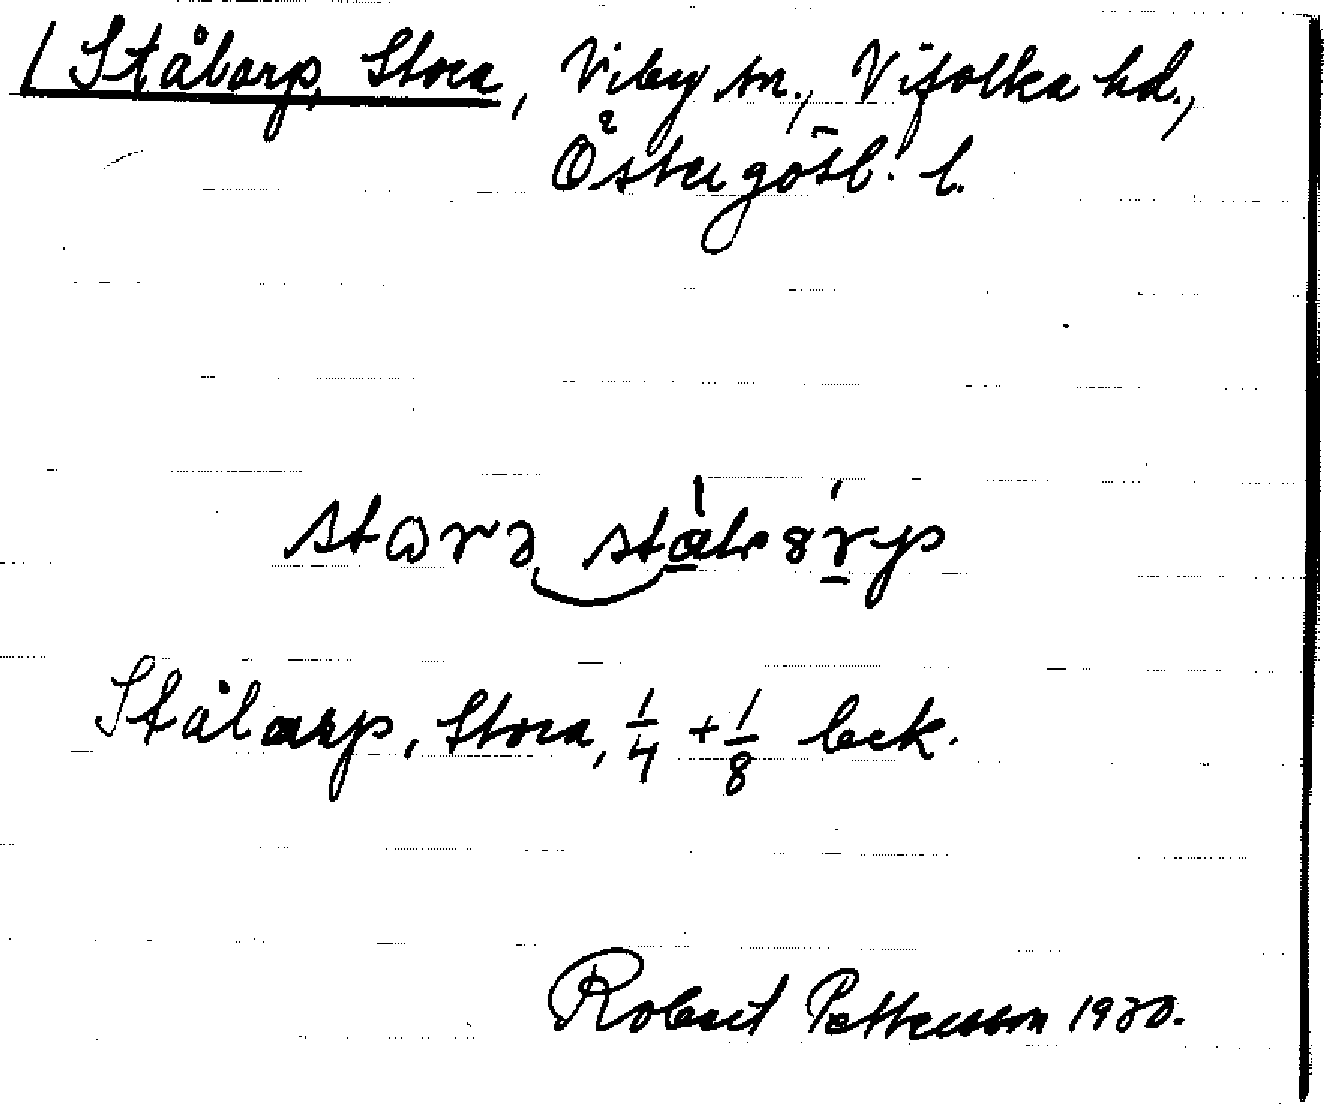 Stålarp, Stora, Viby sn., Vifolka hd.,
Östergötl. l.
Stålarp, Stora, 1/4 + 1/8
Robert Pettersson 1930.